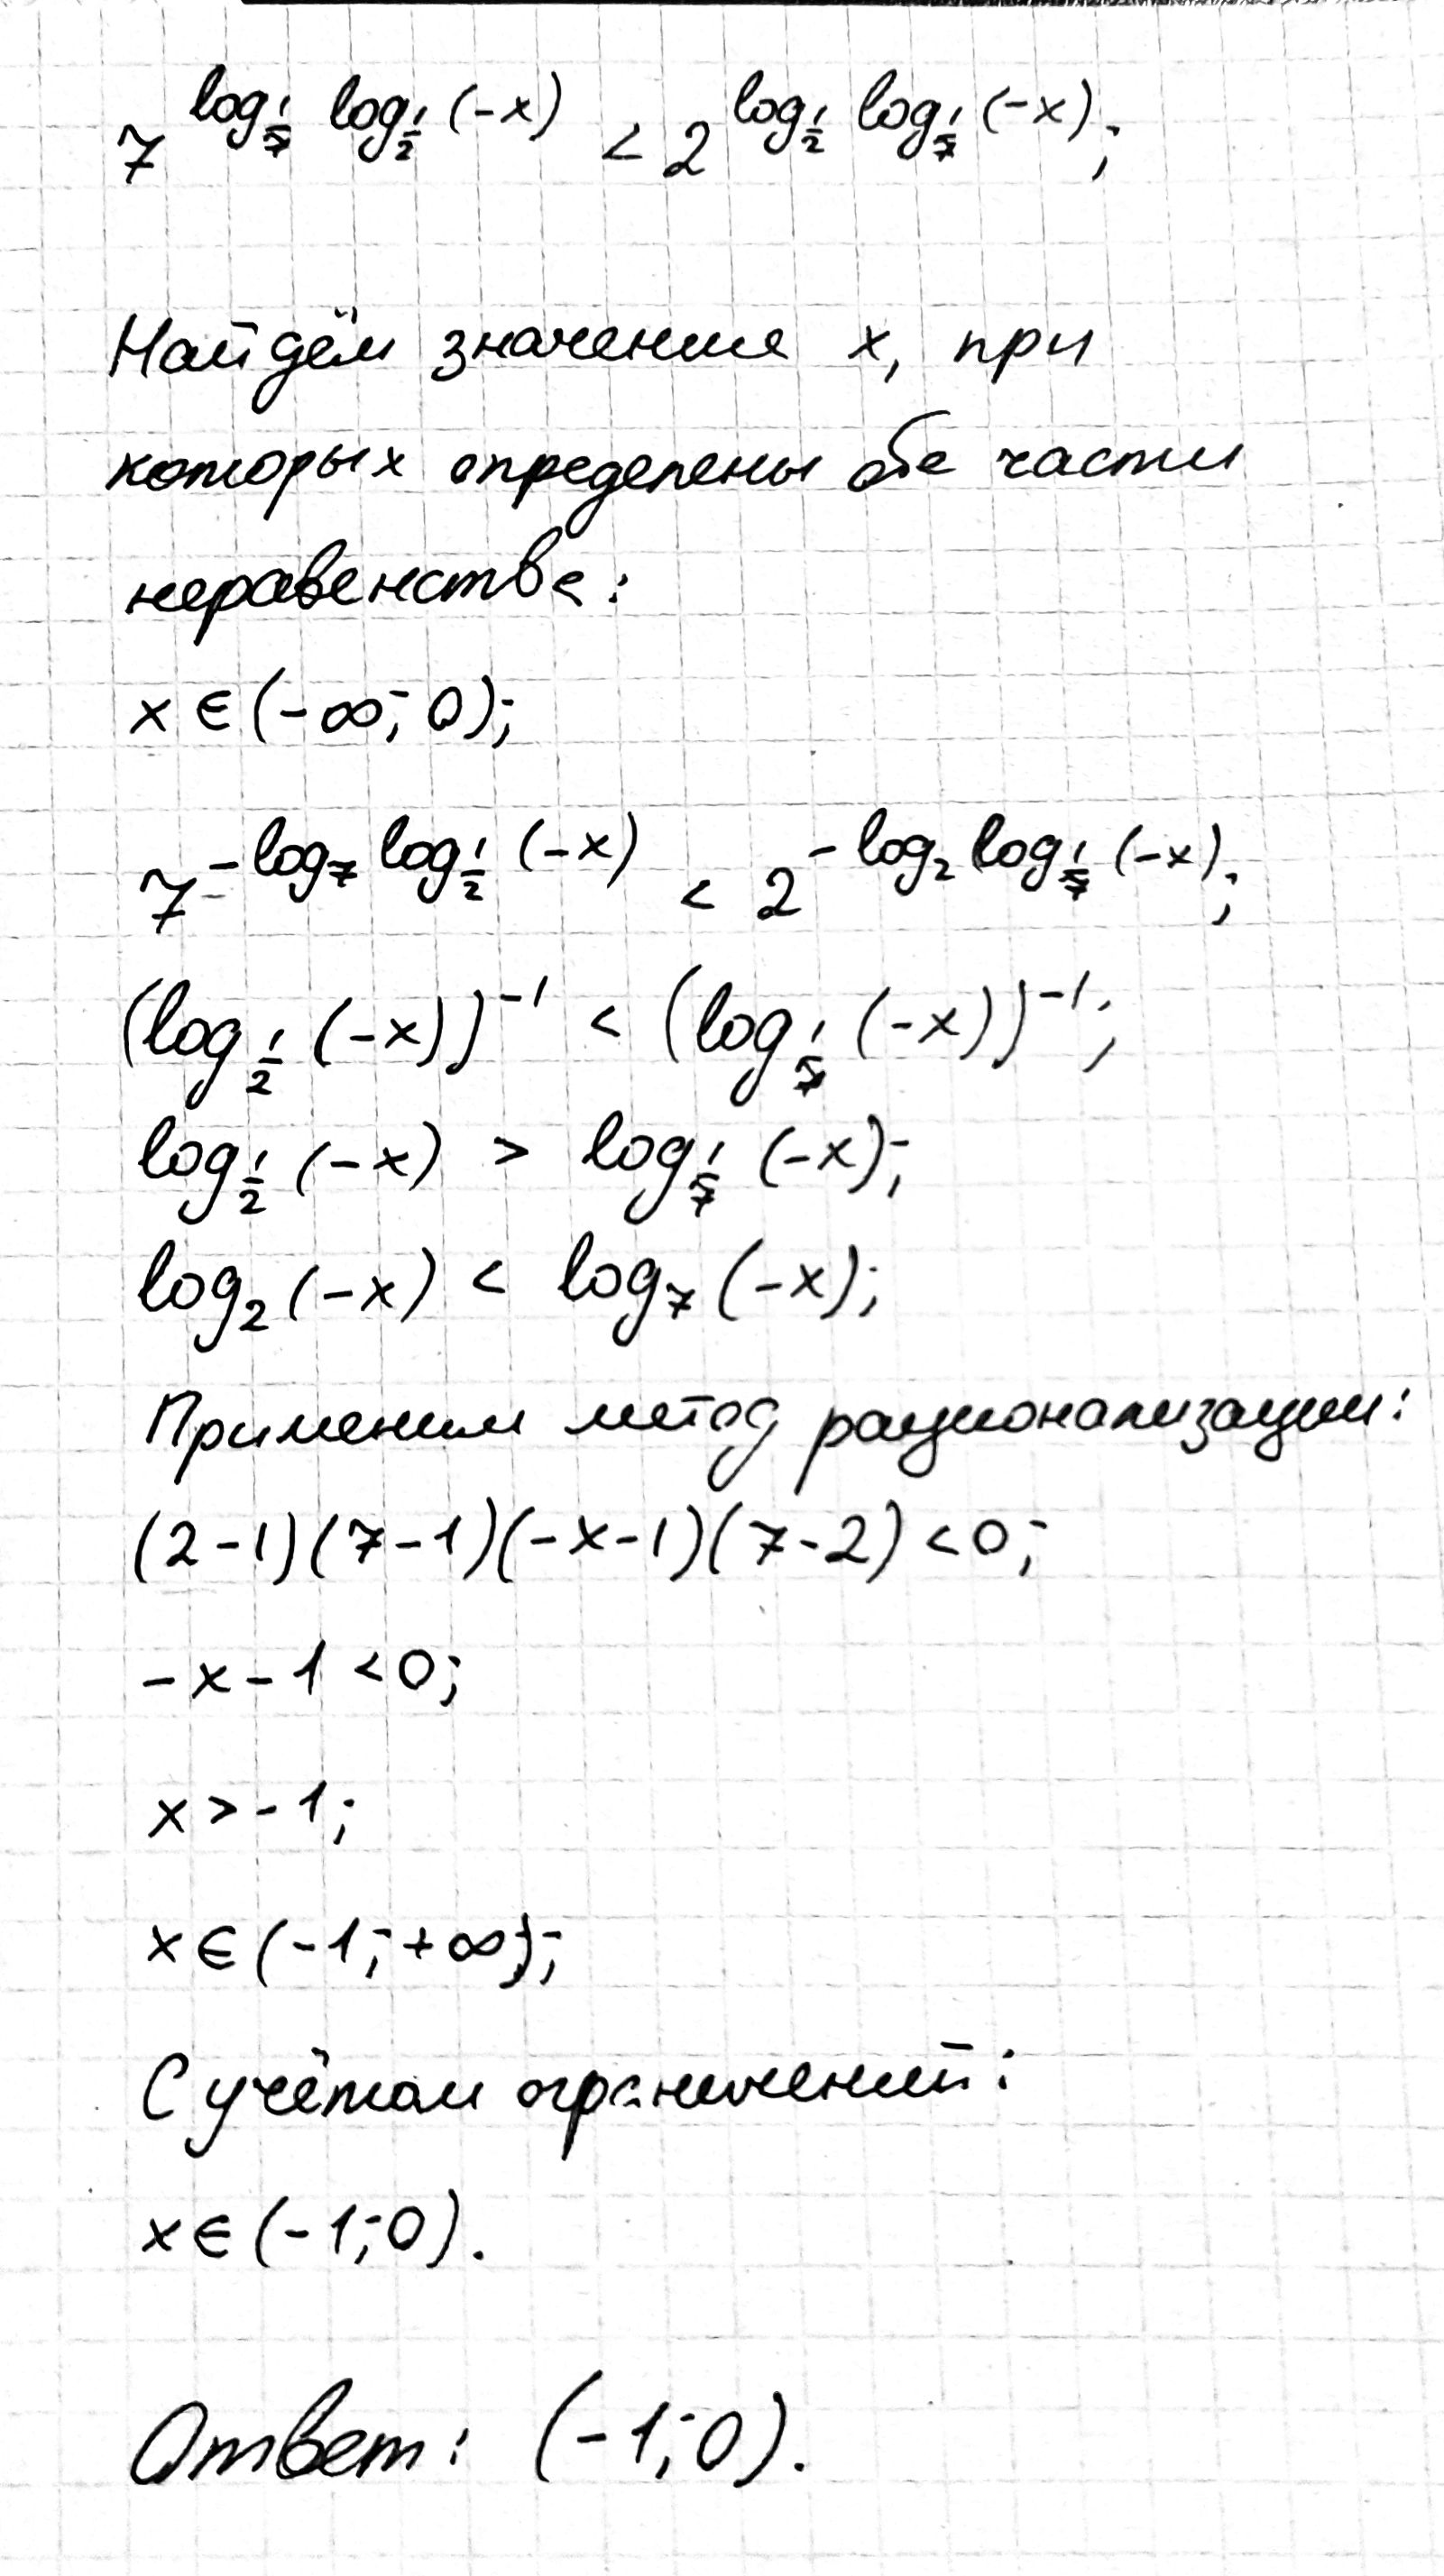 7^{log_{1/7} log_{1/2} (-x)} < 2^{log_{1/2} log_{1/7} (-x)};
Найдём значение x, при
которых определены обе части
неравенства:
x ∈ (-∞; 0);
7^{-log_7 log_{1/2} (-x)} < 2^{-log_2 log_{1/7} (-x)};
(log_{1/2} (-x))^{-1} < (log_{1/7} (-x))^{-1};
log_{1/2} (-x) > log_{1/7} (-x);
log_2 (-x) < log_7 (-x);
Применим метод рационализации:
(2-1)(7-1)(-x-1)(7-2) < 0;
-x-1 < 0;
x > -1;
x ∈ (-1; +∞);
С учётом ограничений:
x ∈ (-1; 0).
Ответ: (-1; 0).